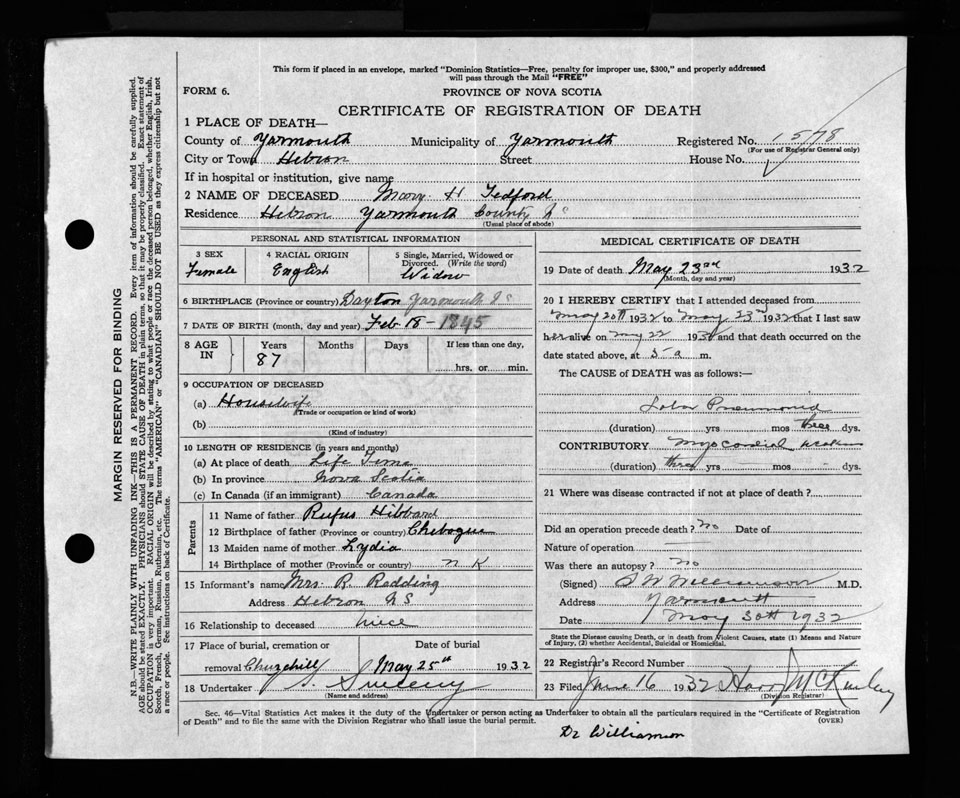 This form if placed in an envelope, marked "Dominion Statistics—Free, penalty for improper use, $300," and properly addressed
will pass through the Mail "FREE"
FORM 6.
PROVINCE OF NOVA SCOTIA
CERTIFICATE OF REGISTRATION OF DEATH
1 PLACE OF DEATH—
County of Yarmouth Municipality of Yarmouth Registered No. 1578
(For use of Registrar General only)
City or Town Hebron Street House No.
If in hospital or institution, give name
2 NAME OF DECEASED Mary H Tedford
Residence Hebron Yarmouth County
(Usual place of abode)
PERSONAL AND STATISTICAL INFORMATION
3 SEX 4 RACIAL ORIGIN 5 Single, Married, Widowed or
Divorced. (Write the word)
Female English Widow
6 BIRTHPLACE (Province or country) Dayton Yarmouth
7 DATE OF BIRTH (month, day and year) Feb 18 - 1845
8 AGE IN Years Months Days If less than one day,
87 hrs. or min.
9 OCCUPATION OF DECEASED
(a) Housewife
(Trade or occupation or kind of work)
(b)
(Kind of industry)
10 LENGTH OF RESIDENCE (in years and months)
(a) At place of death Life Time
(b) In province Nova Scotia
(c) In Canada (if an immigrant) Canada
Parents
11 Name of father Rufus Hibbard
12 Birthplace of father (Province or country) Chebogue
13 Maiden name of mother Lydia
14 Birthplace of mother (Province or country) N K
15 Informant's name Mrs. R. Redding
Address Hebron NS
16 Relationship to deceased Niece
17 Place of burial, cremation or Date of burial
removal Churchill May 25th 1932
18 Undertaker Sweeny
(Name and address)
MEDICAL CERTIFICATE OF DEATH
19 Date of death May 23rd 1932
(Month, day and year)
20 I HEREBY CERTIFY that I attended deceased from
May 20th 1932 to May 23rd 1932 that I last saw
her alive on May 22 1932 and that death occurred on the
date stated above, at 5 a m.
The CAUSE of DEATH was as follows:—
Lobar Pneumonia
(duration) yrs mos three dys.
CONTRIBUTORY Myocardial
(duration) three yrs mos dys.
21 Where was disease contracted if not at place of death?
Did an operation precede death? no Date of
Nature of operation
Was there an autopsy? no
(Signed) S W Williamson M.D.
Address Yarmouth
Date May 30th 1932
State the Disease causing Death, or in death from Violent Causes, state (1) Means and Nature
of Injury, (2) whether Accidental, Suicidal or Homicidal.
22 Registrar's Record Number
23 Filed June 16 1932 McKinley
(Division Registrar)
Sec. 46—Vital Statistics Act makes it the duty of the Undertaker or person acting as Undertaker to obtain all the particulars required in the "Certificate of Registration
of Death" and to file the same with the Division Registrar who shall issue the burial permit. (OVER)
Dr Williamson
MARGIN RESERVED FOR BINDING
N.B.—WRITE PLAINLY WITH UNFADING INK—THIS IS A PERMANENT RECORD. Every item of information should be carefully supplied.
AGE should be stated EXACTLY. PHYSICIANS should STATE CAUSE OF DEATH in plain terms, so that it may be properly classified. Exact statement of
OCCUPATION is very important. RACIAL ORIGIN will be described by stating to what people or race the deceased person belonged, whether English, Irish,
Scotch, French, German, Russian, Ruthenian, etc. The terms "AMERICAN" or "CANADIAN" SHOULD NOT BE USED as they express citizenship but not
a race or people. See instructions on back of Certificate.